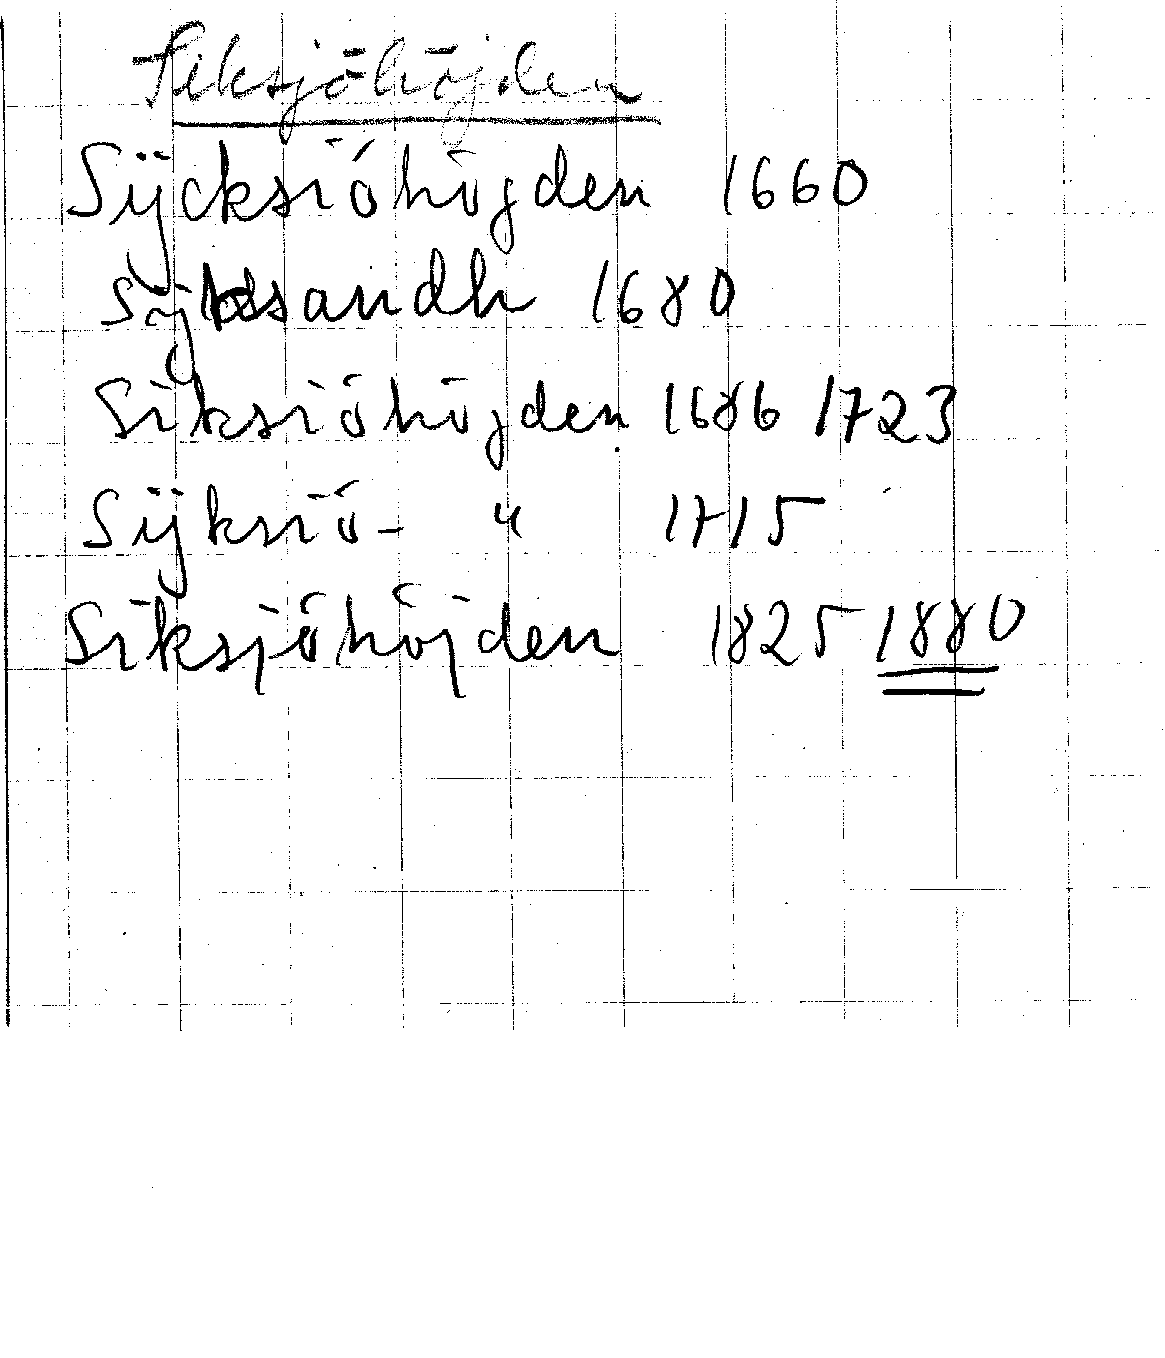 Siksjöhöjden
Sÿcksiöhögden 1660
sandh 1680
Siksiöhögden 1686 1723
Sÿksiö- " 1715
Siksjöhöjden 1825 1880